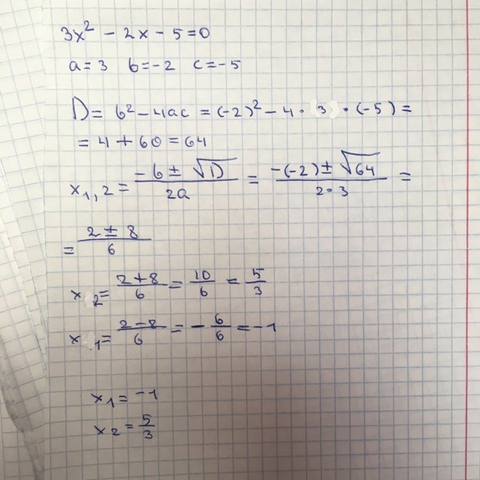 3x² - 2x - 5 = 0
a = 3 b = -2 c = -5
D = b² - 4ac = (-2)² - 4 · 3 · (-5) =
= 4 + 60 = 64
x₁,₂ = (-b ± √D)/(2a) = (-(-2) ± √64)/(2 · 3) =
= (2 ± 8)/6
x₂ = (2+8)/6 = 10/6 = 5/3
x₁ = (2-8)/6 = -6/6 = -1
x₁ = -1
x₂ = 5/3